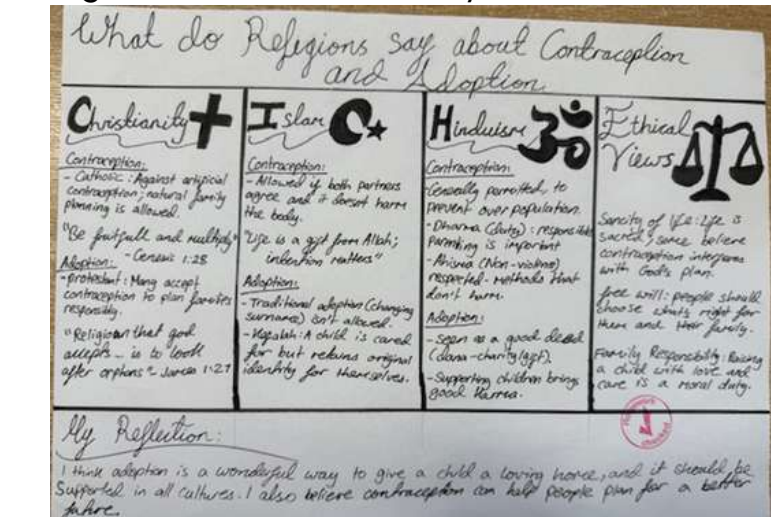 What do Religions say about Contraception
and Adoption
Christianity
Contraception:
- Catholic: Against artificial
contraception; natural family
planning is allowed.
"Be fruitfull and multiply"
- Genesis 1:28
Adoption:
- protestant: Many accept
contraception to plan families
responsibly.
"Religion that god
accepts... is to look
after orphans" - James 1:27
Islam
Contraception:
- Allowed if both partners
agree and it doesnt harm
the body.
"Life is a gift from Allah;
intention matters"
Adoption:
- Traditional adoption (changing
surname) isn't allowed.
- Kafalah: A child is cared
for but retains original
identity for themselves.
Hinduism
Contraception:
- Generally permitted, to
prevent over population.
- Dharma (duty): responsible
parenting is important
- Ahisma (Non-violence)
respected - methods that
don't harm.
Adoption:
- Seen as a good deed
(dana - charity/gift).
- Supporting children brings
good Karma.
Ethical
Views
Sancity of life: Life is
sacred, some believe
contraception interferes
with God's plan.
free will: people should
choose whats right for
them and their family.
Family Responsibility: Raising
a child with love and
care is a moral duty.
My Reflection:
I think adoption is a wonderful way to give a child a loving home, and it should be
Supported in all cultures. I also believe contraception can help people plan for a better